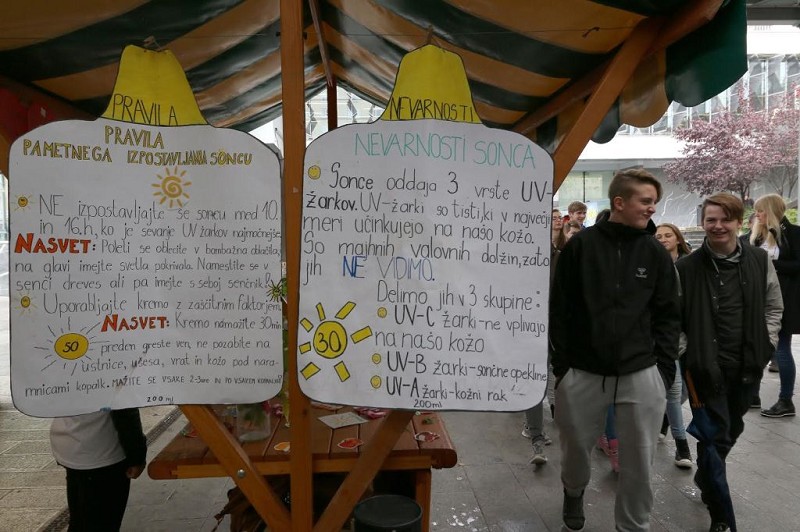 PRAVILA
PRAVILA
PAMETNEGA IZPOSTAVLJANJA SONCU
NE izpostavljajte se soncu med 10.
in 16.h, ko je sevanje UV žarkov najmočnejše.
NASVET: Poleti se oblecite v bombažna oblačila,
na glavi imejte svetla pokrivala. Namestite se v
senci dreves ali pa imejte s seboj senčnik.
Uporabljajte kremo z zaščitnim faktorjem
50
NASVET: Kremo namažite 30min
preden greste ven, ne pozabite na
ustnice, ušesa, vrat in kožo pod nara-
mnicami kopalk. MAŽITE SE VSAKE 2-3 ure IN PO VSAKEM KOPANJU!
200 ml
NEVARNOSTI
NEVARNOSTI SONCA
Sonce oddaja 3 vrste UV-
žarkov. UV-žarki so tisti, ki v največji
meri učinkujejo na našo kožo.
So majhnih valovnih dolžin, zato
jih NE VIDIMO.
Delimo jih v 3 skupine:
UV-C žarki-ne vplivajo
na našo kožo
30
UV-B žarki-sončne opekline
UV-A žarki-kožni rak
200ml